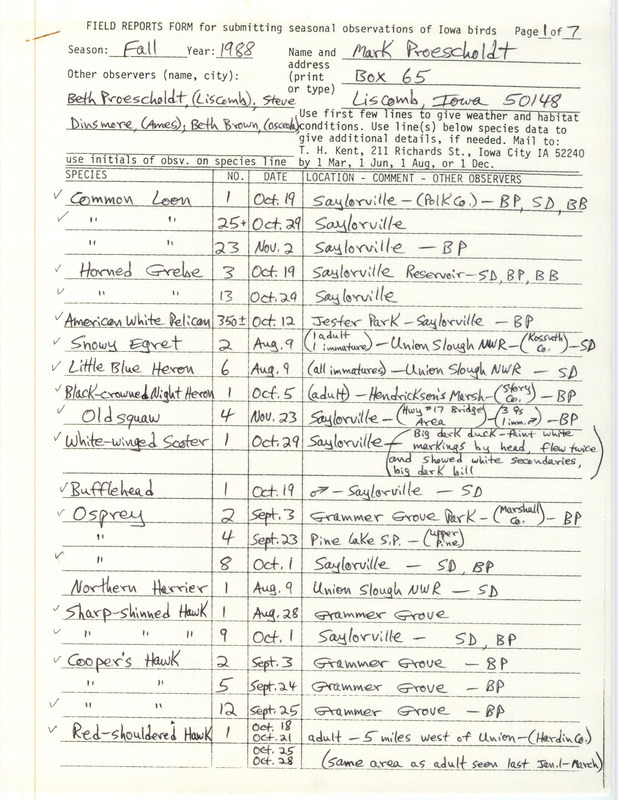 FIELD REPORTS FORM for submitting seasonal observations of Iowa birds Page 1 of 7
Season: Fall Year: 1988 Name and Mark Proescholdt
address
Other observers (name, city): (print Box 65
or type)
Beth Proescholdt, (Liscomb), Steve Liscomb, Iowa 50148
Dinsmore, (Ames); Beth Brown, (Osceola) Use first few lines to give weather and habitat
conditions. Use line(s) below species data to
give additional details, if needed. Mail to:
T. H. Kent, 211 Richards St., Iowa City IA 52240
use initials of obsv. on species line by 1 Mar, 1 Jun, 1 Aug, or 1 Dec.
SPECIES NO. DATE LOCATION - COMMENT - OTHER OBSERVERS
✓ Common Loon 1 Oct. 19 Saylorville - (Polk Co.) - BP, SD, BB
✓ " " 25+ Oct. 29 Saylorville
" " 23 Nov. 2 Saylorville - BP
✓ Horned Grebe 3 Oct. 19 Saylorville Reservoir - SD, BP, BB
✓ " " 13 Oct. 29 Saylorville
✓ American White Pelican 350± Oct. 12 Jester Park - Saylorville - BP
✓ Snowy Egret 2 Aug. 9 (1 adult 1 immature) - Union Slough NWR - (Kossuth Co.) - SD
✓ Little Blue Heron 6 Aug. 9 (all immatures) - Union Slough NWR - SD
✓ Black-crowned Night Heron 1 Oct. 5 (adult) - Hendrickson's Marsh - (Story Co.) - BP
✓ Oldsquaw 4 Nov. 23 Saylorville - (Hwy #17 Bridge Area) - (3 ♀s 1 imm. ♂) - BP
✓ White-winged Scoter 1 Oct. 29 Saylorville - (Big dark duck - faint white
markings by head, flew twice
and showed white secondaries,
big dark bill)
✓ Bufflehead 1 Oct. 19 ♂ - Saylorville - SD
✓ Osprey 2 Sept. 3 Grammer Grove Park - (Marshall Co.) - BP
" 4 Sept. 23 Pine Lake S.P. - (upper Pine)
✓ " 8 Oct. 1 Saylorville - SD, BP
Northern Harrier 1 Aug. 9 Union Slough NWR - SD
✓ Sharp-shinned Hawk 1 Aug. 28 Grammer Grove
✓ " " " 9 Oct. 1 Saylorville - SD, BP
✓ Cooper's Hawk 2 Sept. 3 Grammer Grove - BP
" " 5 Sept. 24 Grammer Grove - BP
✓ " " 12 Sept. 25 Grammer Grove - BP
✓ Red-shouldered Hawk 1 Oct. 18
Oct. 21 adult - 5 miles west of Union - (Hardin Co.)
Oct. 25
Oct. 28 (same area as adult seen last Jan.1-March)